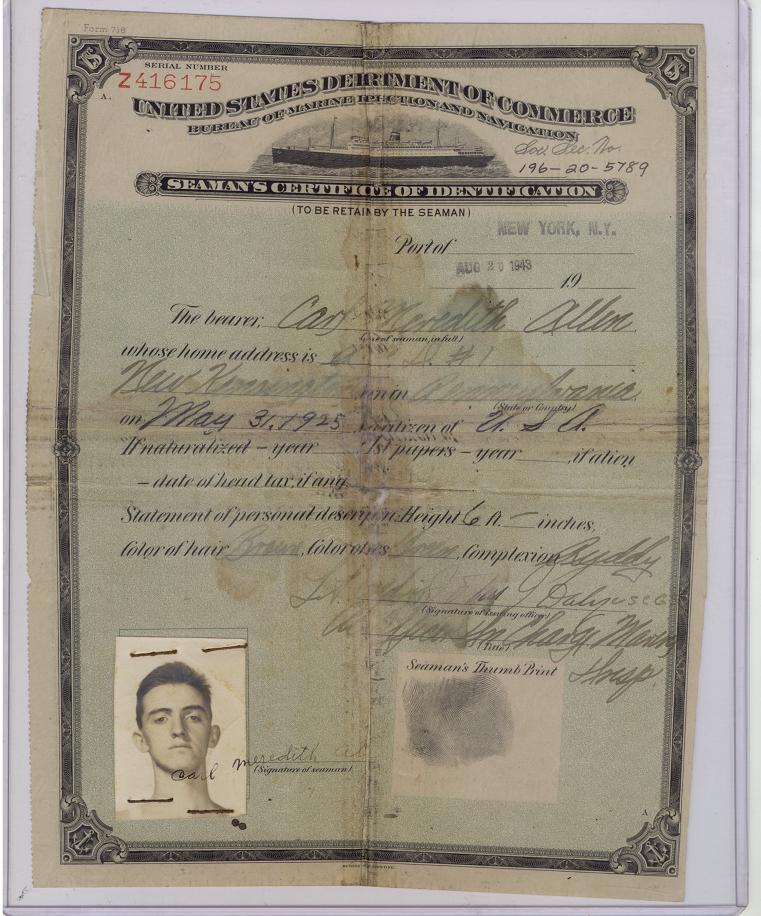 Form 718
SERIAL NUMBER
Z416175
A.
UNITED STATES DEIRTMENT OF COMMERCE
BUREAU OF MARINE IPECTION AND NAVIGATION
Soc. Sec. No.
196-20-5789
SEAMAN'S CERTIFICTE OF IDENTIFICATION
(TO BE RETAIN BY THE SEAMAN)
Port of NEW YORK, N.Y.
AUG 20 1943 19
The bearer, Carl Meredith Allen
of seaman, in full)
whose home address is D. #1
New Kensington in
(State or Country)
on May 31, 1925 citizen of U. S. A.
If naturalized – year 1st papers – year , if alien
– date of head tax, if any
Statement of personal descrip on: Height 6 ft. – inches,
Color of hair Brown, Color of es , Complexion Ruddy
J Daly USCG
(Signature of issuing officer)
In Charge Marine
(Title)
Insp.
Seaman's Thumb Print
Carl Meredith Al
(Signature of seaman)
A